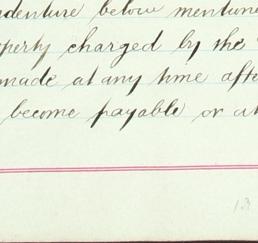 ndenture below mentione
operty charged by the
made at any time afte
become payable or at
13